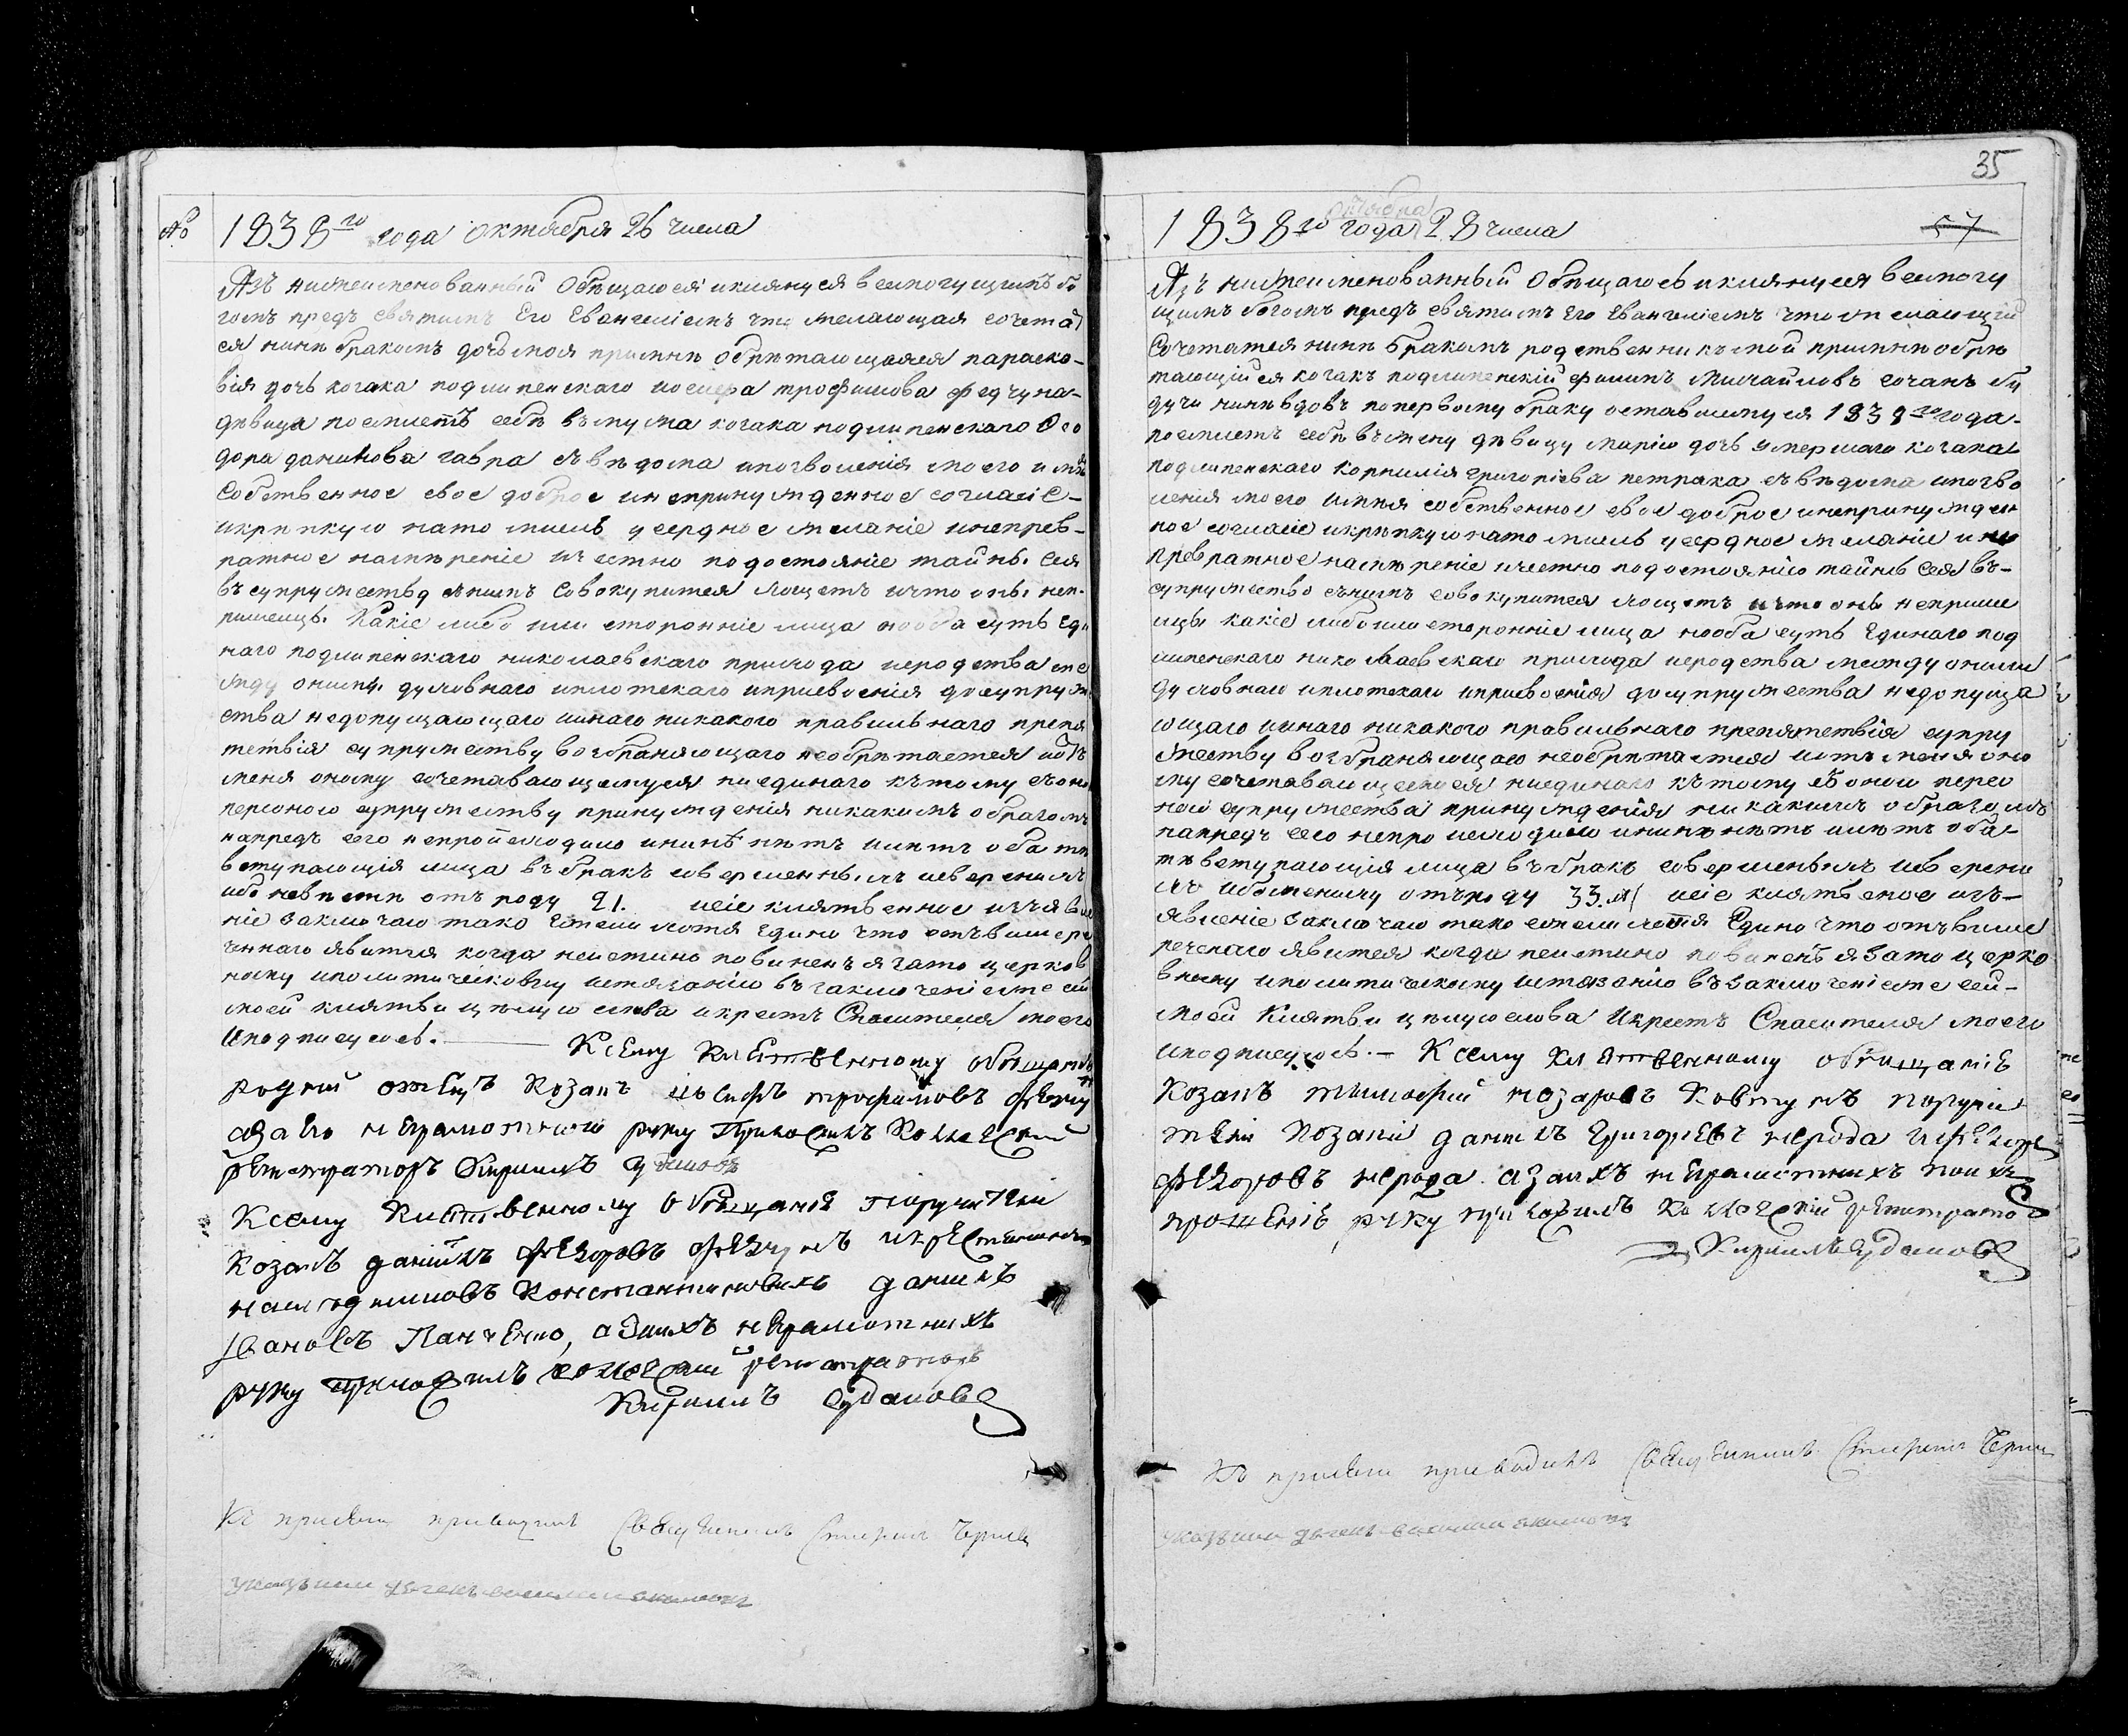 № 1838го года октября 26 числа
Азъ нижеименованный обѣщаюся и клянуся всемогущимъ бо
гомъ предъ святимъ Его Евангелиемъ что желающая сочета
ся нинѣ бракомъ дочъ моя примнѣ обрѣтающаяся параско-
вія дочь козака подлипенскаго иосифа трофимова федчуна-
дѣвица поемлетъ себѣ въ мужа козака подлипенскаго Фео
дора данилова гавра съ вѣдома ипозволенія моего и имѣя
собственное свое доброе инепринужденное согласіе-
икрѣпкую нато мисль усердное желаніе инепрев-
ратное намѣреніе ичестно подостояніе тайны сея
въ супружество снимъ совокупится хощетъ ичто оны неп-
ришелцы какіе либо или сторонніе лица но оба суть еди
наго подлипенскаго николаевскаго прихода иеродства ме
жду онимы духовнаго иплотскаго иприсвоенія досупруж
ства недопущающаго иинаго никакого правильнаго препя
тствія супружеству возбраняющаго необрѣтается иотъ
меня оному сочетавающемуся ниединаго кътому съоно
персоною супружеству принужденія никакимъ образомъ
напредъ сего непроисходило ининѣ нѣтъ илѣтъ оба тѣ
вступающія лица въ бракъ совершеннымъ ивѣренимъ
ибо невѣсти отъ роду 21. исіе клятвенное изъявле
ніе заключаю тако Ежели хотя Едино что отъ вишере
ченнаго явится когда неистино повиненъ я зато церков
ному иполитическовму истязанію въ заключеніе же сей
моей клятви цѣлую слова икрестъ Спасителя моего
иподписуюсь. Ксему клятвенному обѣщанію
родний отецъ козакъ иосифъ трофимовъ федчу
азаего неграмотного руку приложилъ колежский
регистраторъ Кирилъ
Ксему клятвенному обѣщаніе поручители
козакъ данилъ федоровъ федчунъ икрестянинъ
Константиновихъ данилъ
Івановъ Панченко, азаихъ неграмотнихъ
руку приложилъ колежский регистраторъ
Кирилъ
Къ присяги приводилъ Священникъ
1838го года октября 28 числа 57
35
Азъ нижеименованный обѣщаюсь иклянуся всемогу
щимъ богомъ предъ святимъ Его Евангелиемъ что желающій
сочетатся нинѣ бракомъ родственникъ мой примнѣ обрѣ
тающійся козакъ подлипенскій филипъ михайловъ сочанъ бу
дучи нинѣ вдовъ попервому браку оставшимуся 1838го года-
поемлетъ себѣ въ жену дѣвицу марію дочь умершаго козака
подлипенскаго корнилія григоріева петрака съ вѣдома ипозво
ленія моего имѣя собственное свое доброе инепринужден
ное согласіе икрѣпкую нато мисль усердное желаніе ине
превратное намѣреніе ичестно подостоянію тайны сея въ-
супружество сънимъ совокупится хощетъ ичто оны непришел
цы какіе либо или сторонніе лица нооба суть единаго под
липенскаго николаевскаго прихода иеродства между оними
духовнаго иплотскаго иприсвоенія досупружества недопуща
ющаго иинаго никакого правильнаго препятствія супру
жеству возбраняющаго необрѣтается иотъ меня оно
му сочетавающемуся ниединаго кътому съоною персо
ною супружества принужденія никакимъ образомъ
напредъ сего непроисходило ининѣ нѣтъ илѣтъ оба-
тѣ вступающія лица въ бракъ совершеннымъ ивѣрени
мъ ибо жениху отъ роду 33. исіе клятвеное изъ-
явленіе заключаю тако ежели хотя Едино что отъ више
реченаго явится когда неистино повиненъ я зато церко
вному иполитическому истязанію въ заключеніе же сей-
моей клятви цѣлую слова икрестъ Спасителя моего
иподписуюсь.- Ксему клятвенному обѣщаніе
козакъ тимофей назаровъ Ковтунъ поручи
тели козаки данилъ григориевъ нерода
федоровъ нерода азаихъ неграмотнихъ поихъ
прошеніѣ руку приложилъ колежский регистраторъ
Кирилъ
Къ присяги приводилъ Священникъ